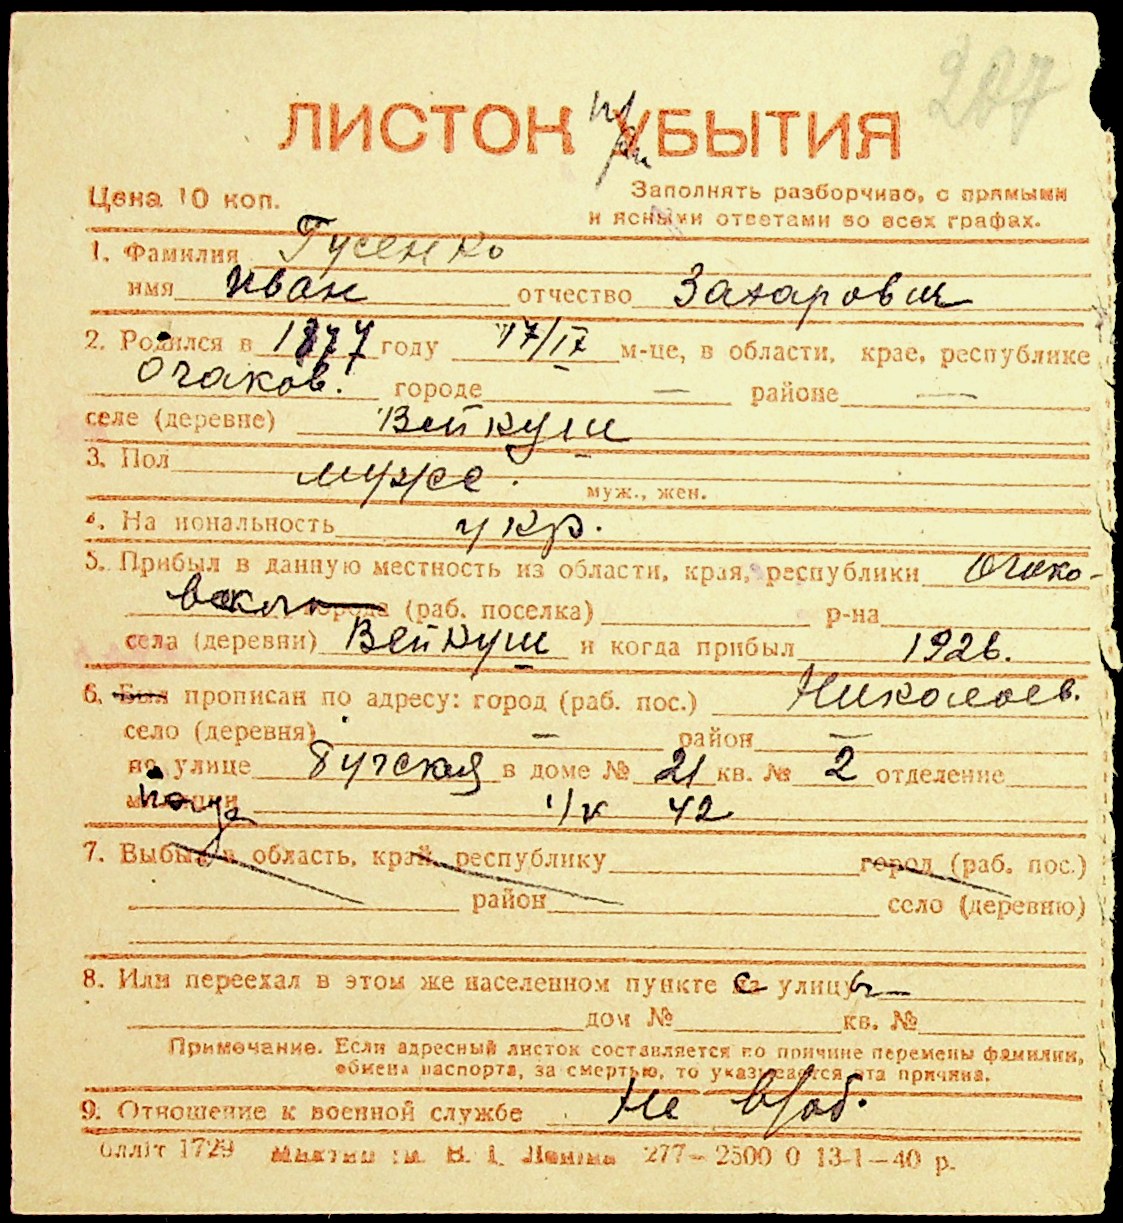 207
ЛИСТОК УБЫТИЯ
при
Цена 10 коп. Заполнять разборчиво, с прямыми
и ясными ответами во всех графах.
1. Фамилия Гусенко
имя Иван отчество Захарович
2. Родился в 1877 году 17/IV м-це, в области, крае, республике
Очаков. городе — районе —
селе (деревне) Вейкуш
3. Пол мужс.
муж., жен.
4. На иональность укр.
5. Прибыл в данную местность из области, края, республики Очако-
вског города (раб. поселка) р-на
села (деревни) Вейкуш и когда прибыл 1926.
6. Был прописан по адресу: город (раб. пос.) Николаев.
село (деревня) — район —
по улице Бугская в доме № 21 кв. № 2 отделение
милиции ч/к 42
7. Выбыл в область, край, республику город (раб. пос.)
район село (деревню)
8. Или переехал в этом же населенном пункте с улицы
дом № кв. №
Примечание. Если адресный листок составляется по причине перемены фамилии,
обмена паспорта, за смертью, то указывается эта причина.
9. Отношение к военной службе Не в/об.
блліт 1729 им. В. І. Леніна 277—2500 0 13-1—40 р.